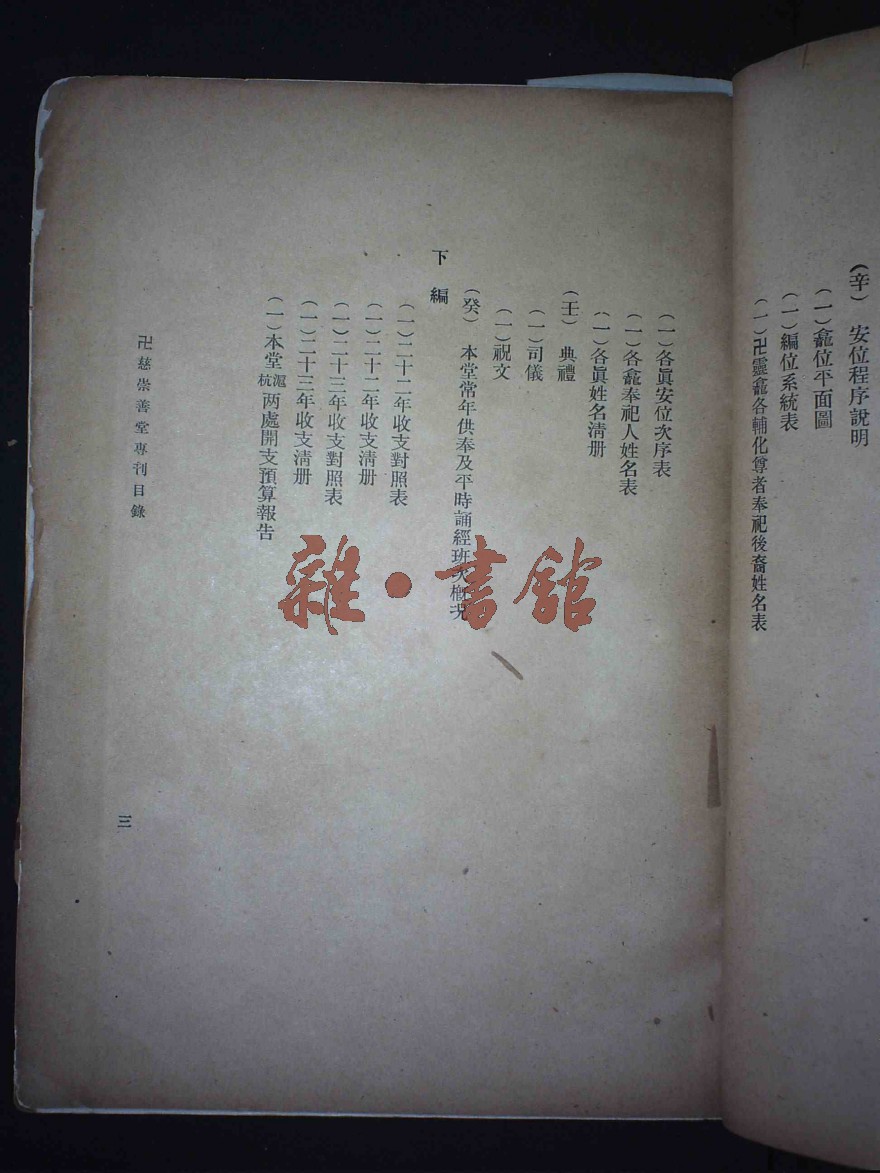 (辛) 安位程序說明
(一)龕位平面圖
(一)編位系統表
(一)卍靈龕各輔化尊者奉祀後裔姓名表
(一)各眞安位次序表
(一)各龕奉祀人姓名表
(一)各眞姓名淸册
(壬) 典禮
(一)司儀
(一)祝文
(癸) 本堂常年供奉及平時誦經班次槪况
下編
(一)二十二年收支對照表
(一)二十二年收支淸册
(一)二十三年收支對照表
(一)二十三年收支淸册
(一)本堂滬杭两處開支預算報告
卍慈崇善堂專刊目錄
三
雜·書館